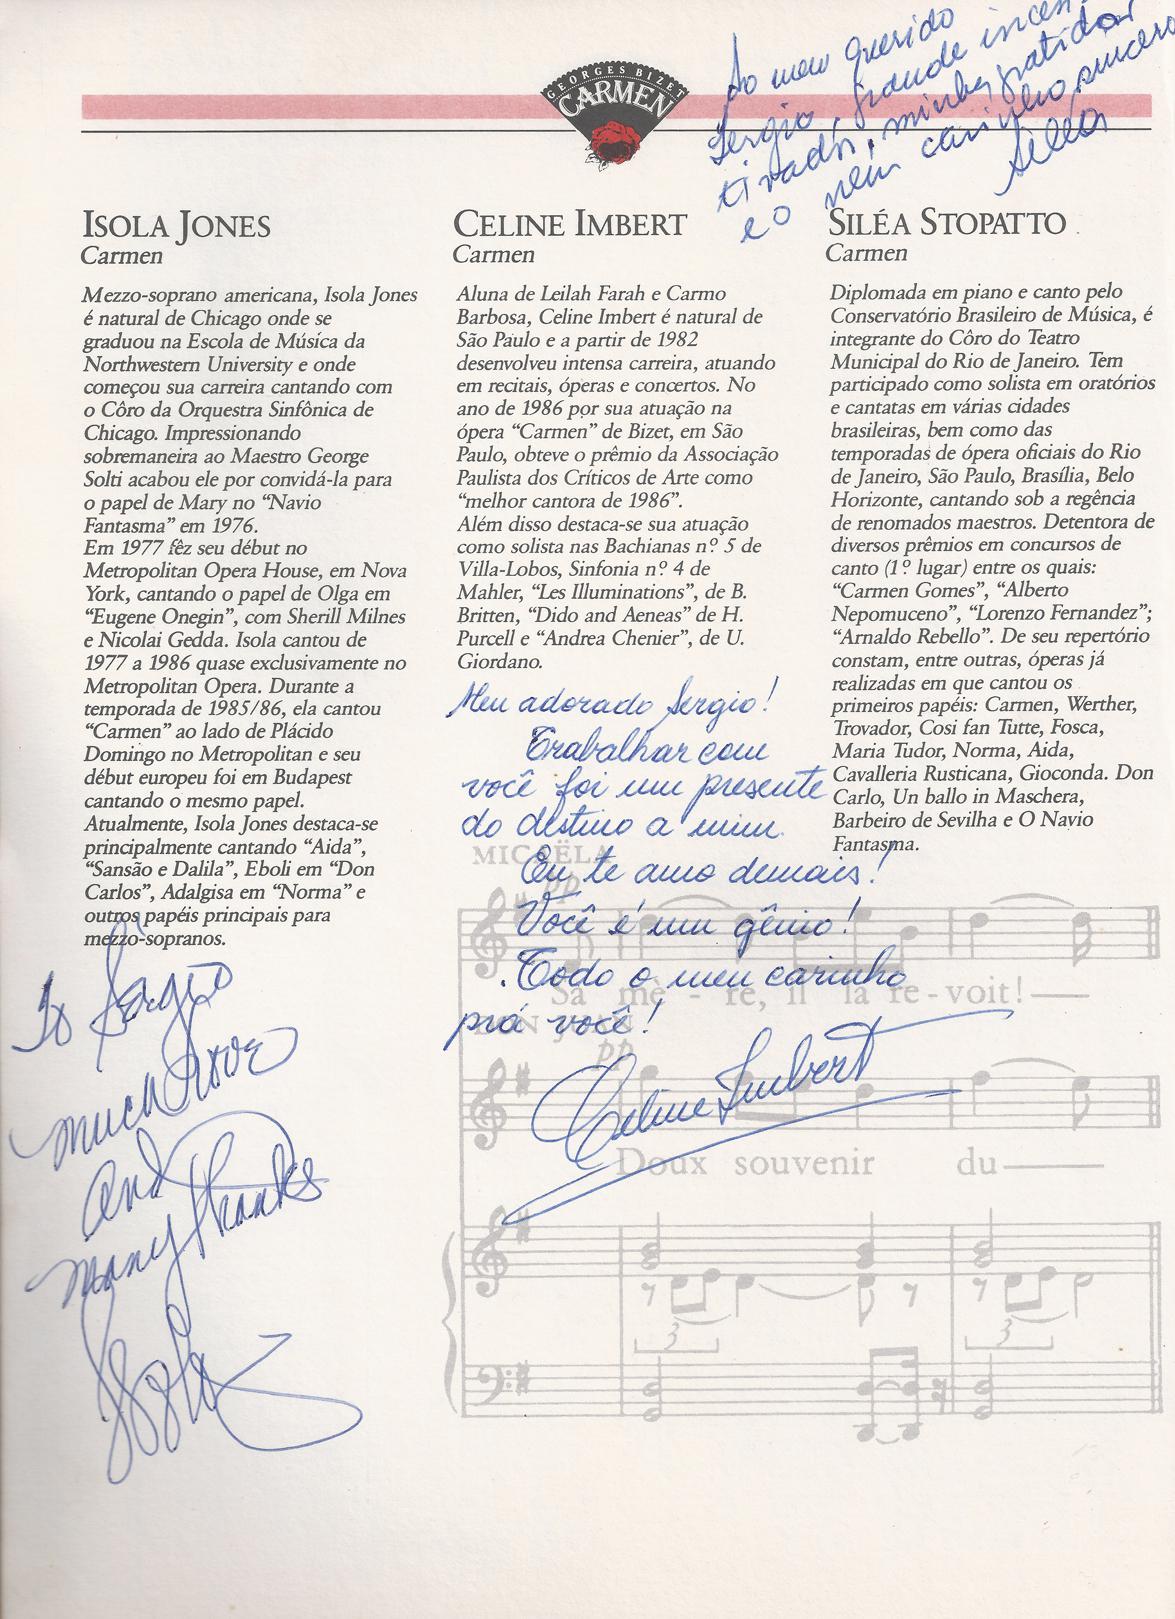 GEORGES BIZET
CARMEN
Ao meu querido
Sergio, grande incen-
tivador, minha gratidão
e o meu carinho sincero
Siléa
ISOLA JONES
Carmen
Mezzo-soprano americana, Isola Jones
é natural de Chicago onde se
graduou na Escola de Música da
Northwestern University e onde
começou sua carreira cantando com
o Côro da Orquestra Sinfônica de
Chicago. Impressionando
sobremaneira ao Maestro George
Solti acabou ele por convidá-la para
o papel de Mary no “Navio
Fantasma” em 1976.
Em 1977 fêz seu début no
Metropolitan Opera House, em Nova
York, cantando o papel de Olga em
“Eugene Onegin”, com Sherill Milnes
e Nicolai Gedda. Isola cantou de
1977 a 1986 quase exclusivamente no
Metropolitan Opera. Durante a
temporada de 1985/86, ela cantou
“Carmen” ao lado de Plácido
Domingo no Metropolitan e seu
début europeu foi em Budapest
cantando o mesmo papel.
Atualmente, Isola Jones destaca-se
principalmente cantando “Aida”,
“Sansão e Dalila”, Eboli em “Don
Carlos”, Adalgisa em “Norma” e
outros papéis principais para
mezzo-sopranos.
To Sergio
much love
and
many thanks
Isola
CELINE IMBERT
Carmen
Aluna de Leilah Farah e Carmo
Barbosa, Celine Imbert é natural de
São Paulo e a partir de 1982
desenvolveu intensa carreira, atuando
em recitais, óperas e concertos. No
ano de 1986 por sua atuação na
ópera “Carmen” de Bizet, em São
Paulo, obteve o prêmio da Associação
Paulista dos Críticos de Arte como
“melhor cantora de 1986”.
Além disso destaca-se sua atuação
como solista nas Bachianas nº 5 de
Villa-Lobos, Sinfonia nº 4 de
Mahler, “Les Illuminations”, de B.
Britten, “Dido and Aeneas” de H.
Purcell e “Andrea Chenier”, de U.
Giordano.
Meu adorado Sergio!
Trabalhar com
você foi um presente
do destino a mim.
Eu te amo demais!
Você é um gênio!
Todo o meu carinho
prá você!
Celine Imbert
SILÉA STOPATTO
Carmen
Diplomada em piano e canto pelo
Conservatório Brasileiro de Música, é
integrante do Côro do Teatro
Municipal do Rio de Janeiro. Tem
participado como solista em oratórios
e cantatas em várias cidades
brasileiras, bem como das
temporadas de ópera oficiais do Rio
de Janeiro, São Paulo, Brasília, Belo
Horizonte, cantando sob a regência
de renomados maestros. Detentora de
diversos prêmios em concursos de
canto (1º lugar) entre os quais:
“Carmen Gomes”, “Alberto
Nepomuceno”, “Lorenzo Fernandez”;
“Arnaldo Rebello”. De seu repertório
constam, entre outras, óperas já
realizadas em que cantou os
primeiros papéis: Carmen, Werther,
Trovador, Cosi fan Tutte, Fosca,
Maria Tudor, Norma, Aida,
Cavalleria Rusticana, Gioconda. Don
Carlo, Un ballo in Maschera,
Barbeiro de Sevilha e O Navio
Fantasma.
MICAËLA
pp
Sa mè - re, il la re - voit!
DON JOSÉ
pp
Doux souvenir du
3
3